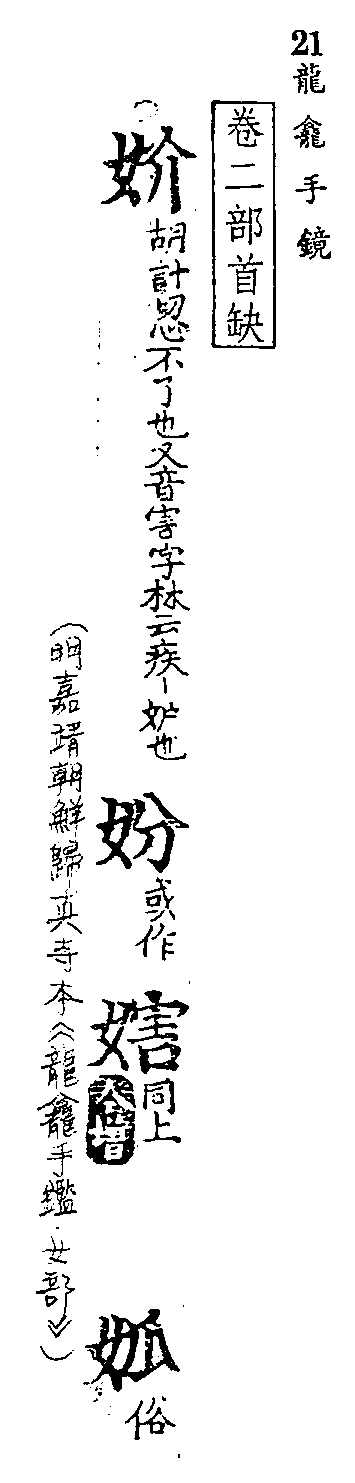 21龍龕手鏡
卷二部首缺
妎胡計㤅不了也又音害字林云疾丨妒也
妎或作
㛿同上
俗
（明嘉靖朝鮮歸真寺本《龍龕手鑑·女部》）